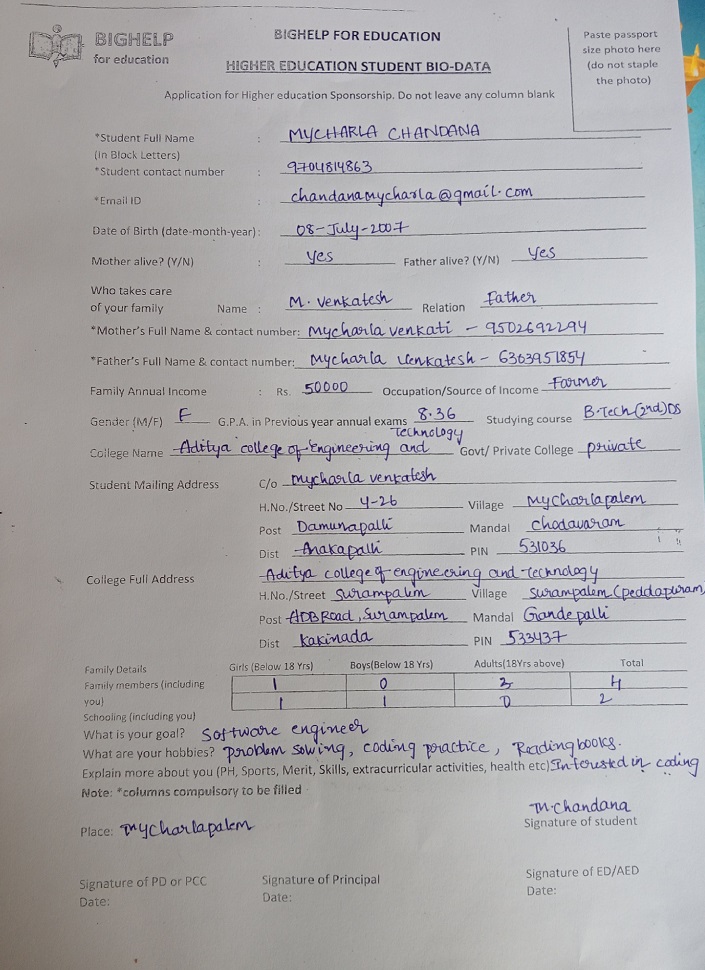 BIGHELP
for education
BIGHELP FOR EDUCATION
HIGHER EDUCATION STUDENT BIO-DATA
Paste passport
size photo here
(do not staple
the photo)
Application for Higher education Sponsorship. Do not leave any column blank
*Student Full Name : MYCHARLA CHANDANA
(in Block Letters)
*Student contact number : 9704814863
*Email ID : chandanamycharla@gmail.com
Date of Birth (date-month-year): 08-July-2007
Mother alive? (Y/N) : yes Father alive? (Y/N) yes
Who takes care
of your family Name : M. venkatesh Relation Father
*Mother's Full Name & contact number: Mycharla venkati - 9502692294
*Father's Full Name & contact number: Mycharla Venkatesh - 6303951854
Family Annual Income : Rs. 50000 Occupation/Source of Income Farmer
Gender (M/F) F G.P.A. in Previous year annual exams 8.36 Studying course B.Tech(2nd)DS
College Name Aditya college of Engineering and Technology Govt/ Private College private
Student Mailing Address C/o mycharla venkatesh
H.No./Street No 4-26 Village Mycharlapalem
Post Damunapalli Mandal chodavaram
Dist Anakapalli PIN 531036
College Full Address Aditya college of engineering and technology
H.No./Street Surampalem Village surampalem (peddapuram)
Post ADB Road, Surampalem Mandal Gandepalli
Dist Kakinada PIN 533437
Family Details Girls (Below 18 Yrs) Boys(Below 18 Yrs) Adults(18Yrs above) Total
Family members (including you) 1 0 3 4
Schooling (including you) 1 1 0 2
What is your goal? Software engineer
What are your hobbies? problem solving, coding practice, Reading books.
Explain more about you (PH, Sports, Merit, Skills, extracurricular activities, health etc) Interested in coding
Note: *columns compulsory to be filled
Place: Mycharlapalem
M.Chandana
Signature of student
Signature of PD or PCC Signature of Principal Signature of ED/AED
Date: Date: Date: